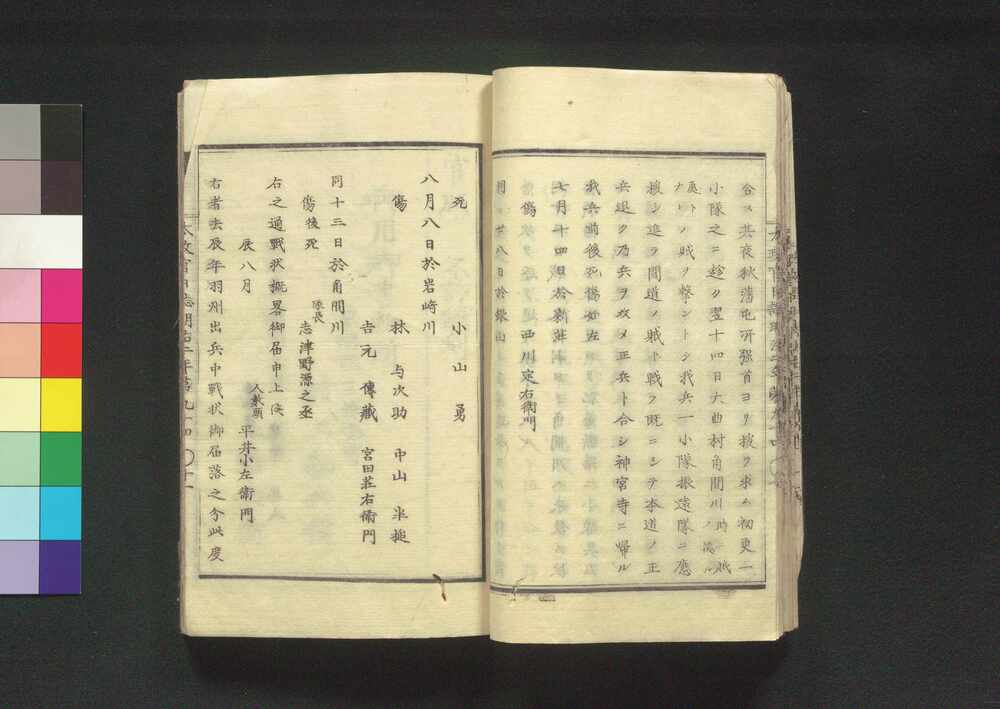 合ス其夜秋藩屯所強首ヨリ援ヲ求ム初更一
小隊之ニ趁ク翌十四日大曲村角間川
ノ賊ヲ撃ントシ我兵一小隊振遠隊ニ應
援シ進ヲ間道ノ賊ト戰フ既ニシテ本道ノ正
兵退ク乃兵ヲ收メ正兵ト合シ神宮寺ニ帰ル
我兵前後死傷如左
七月十四日於新庄
傷 西川定右衛門
死 小山勇
八月八日於岩﨑川
傷 林与次助 中山半槌
吉元傳藏 宮田荘右衛門
同十三日於角間川
傷後死 隊長 志津野源之丞
右之通戰状概畧御届申上候
辰八月
人数頭 平井小左衛門
右者去辰年羽州出兵中戰状御届落之分此度